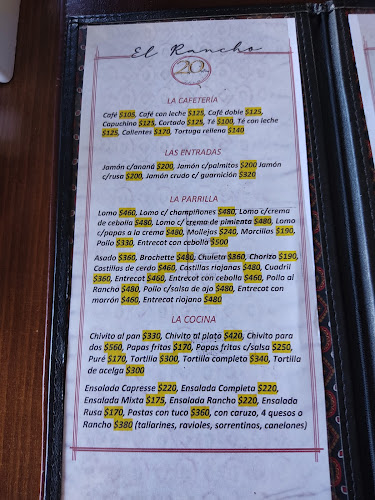 El Rancho
20
LA CAFETERÍA
Café $105, Café con leche $125, Café doble $125,
Capuchino $125, Cortado $125, Té $100, Té con leche
$125, Calientes $170, Tortuga rellena $140
LAS ENTRADAS
Jamón c/ananá $200, Jamón c/palmitos $200 Jamón
c/rusa $200, Jamón crudo c/ guarnición $320
LA PARRILLA
Lomo $460, Lomo c/ champiñones $480, Lomo c/crema
de cebolla $480, Lomo c/ crema de pimienta $480, Lomo
c/papas a la crema $480, Mollejas $240, Morcillas $190,
Pollo $330, Entrecot con cebolla $500
Asado $360, Brochette $480, Chuleta $360, Chorizo $190,
Costillas de cerdo $460, Costillas riojanas $480, Cuadril
$360, Entrecot $460, Entrecot con cebolla $460, Pollo al
Rancho $480, Pollo c/salsa de ajo $480, Entrecot con
marrón $460, Entrecot riojano $480
LA COCINA
Chivito al pan $330, Chivito al plato $420, Chivito para
dos $560, Papas fritas $170, Papas fritas c/salsa $250,
Puré $170, Tortilla $300, Tortilla completa $340, Tortilla
de acelga $300
Ensalada Capresse $220, Ensalada Completa $220,
Ensalada Mixta $175, Ensalada Rancho $220, Ensalada
Rusa $170, Pastas con tuco $360, con caruzo, 4 quesos o
Rancho $380 (tallarines, ravioles, sorrentinos, canelones)